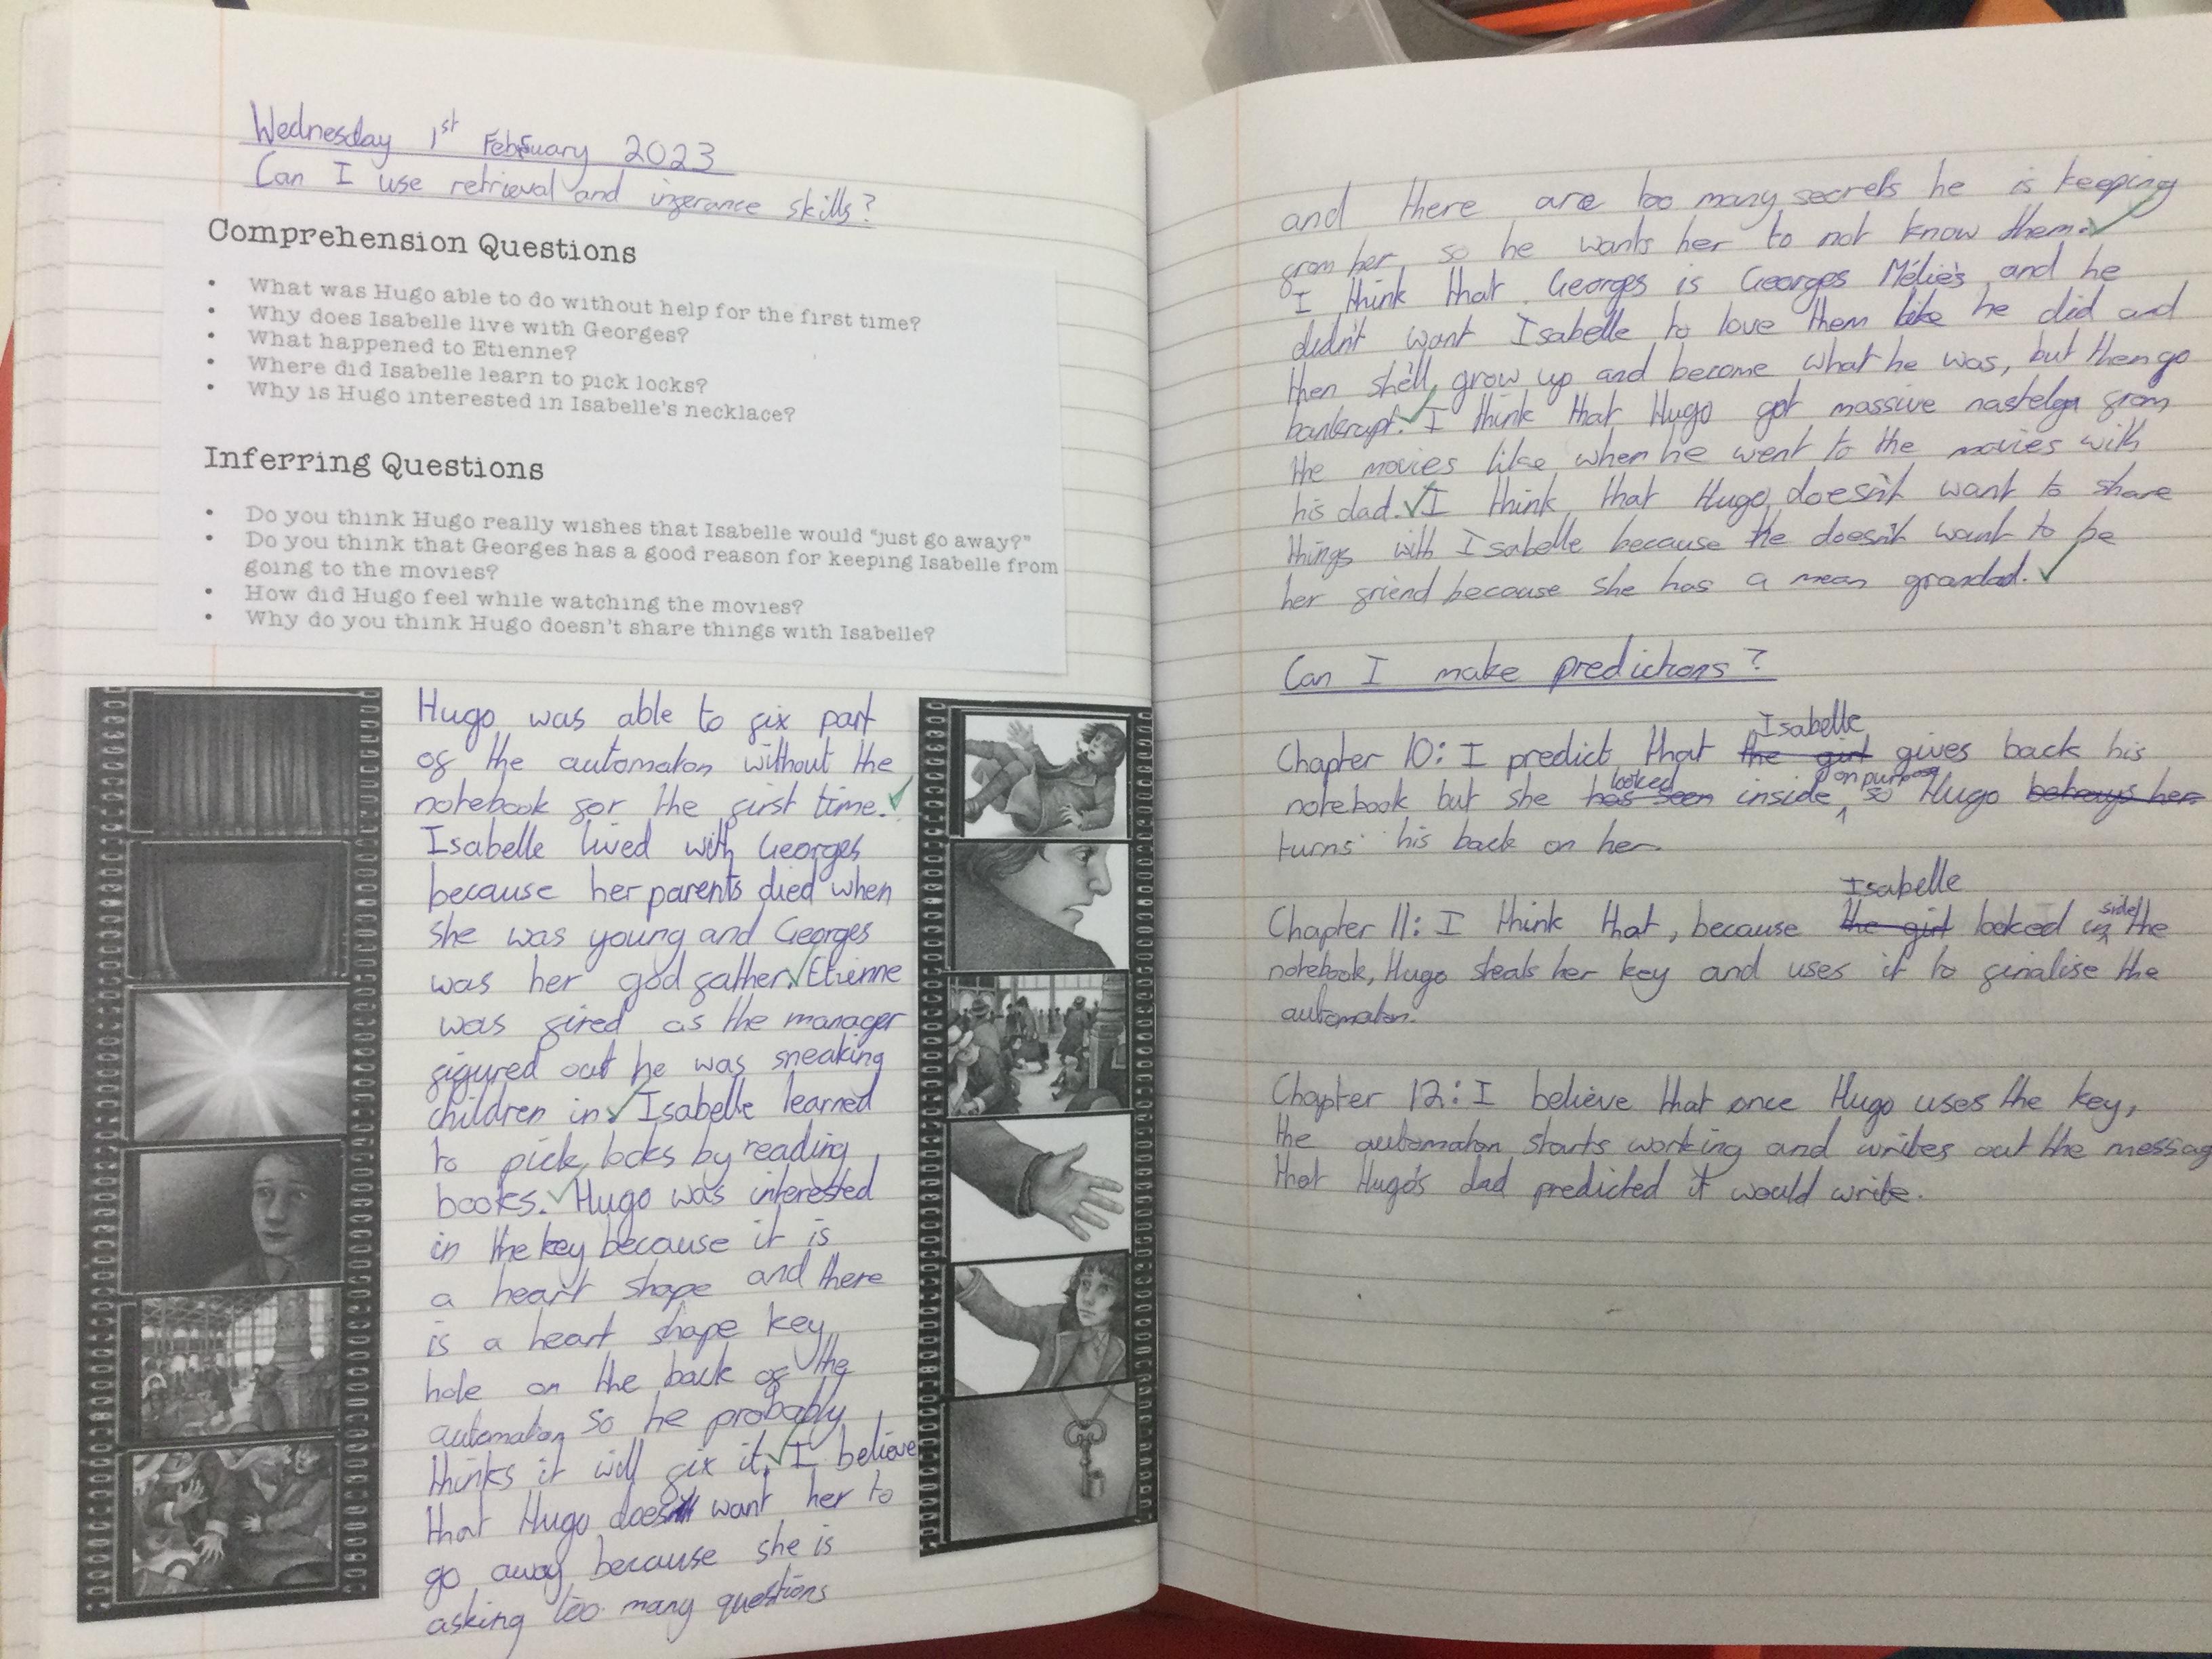 Wednesday 1st February 2023
Can I use retrieval and inferance skills?
Comprehension Questions
• What was Hugo able to do without help for the first time?
• Why does Isabelle live with Georges?
• What happened to Etienne?
• Where did Isabelle learn to pick locks?
• Why is Hugo interested in Isabelle's necklace?
Inferring Questions
• Do you think Hugo really wishes that Isabelle would "just go away?"
• Do you think that Georges has a good reason for keeping Isabelle from
going to the movies?
• How did Hugo feel while watching the movies?
• Why do you think Hugo doesn't share things with Isabelle?
Hugo was able to fix part
of the automaton without the
notebook for the first time.
Isabelle lived with Georges
because her parents died when
she was young and Georges
was her god father. Etienne
was fired as the manager
figured out he was sneaking
children in. Isabelle learned
to pick locks by reading
books. Hugo was interested
in the key because it is
a heart shape and there
is a heart shape key
hole on the back of the
automaton so he probably
thinks it will fix it. I believe
that Hugo does want her to
go away because she is
asking too many questions
and there are too many secrets he is keeping
from her, so he wants her to not know them.
I think that Georges is Georges Méliès and he
didn't want Isabelle to love them like he did and
then she'll grow up and become what he was, but then go
bankrupt. I think that Hugo got massive nastelga from
the movies like when he went to the movies with
his dad. I think that Hugo doesn't want to share
things with Isabelle because he doesn't want to be
her friend because she has a mean grandad.
Can I make predictions?
Isabelle
Chapter 10: I predict that the girl gives back his
looked on purpose
notebook but she has seen inside, so Hugo betrays her
turns his back on her
Isabelle
Chapter 11: I think that, because the girl looked inside the
notebook, Hugo steals her key and uses it to finalise the
automaton.
Chapter 12: I believe that once Hugo uses the key,
the automaton starts working and writes out the messag
that Hugo's dad predicted it would write.